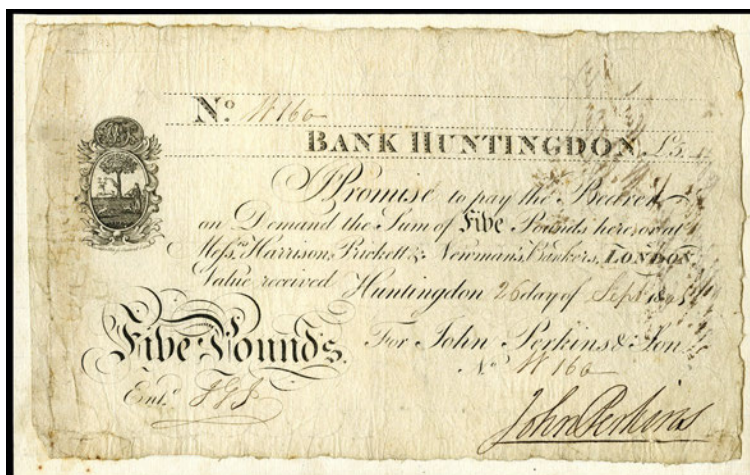 No. W160
BANK HUNTINGDON £5
I Promise to pay the Bearer
on Demand the Sum of Five Pounds here or at
Messrs. Harrison, Prickett & Newman's, Bankers, LONDON
Value received Huntingdon 26 day of Sept
Five Pounds. For John Perkins & Son
No. W160
Entd.
John Perkins